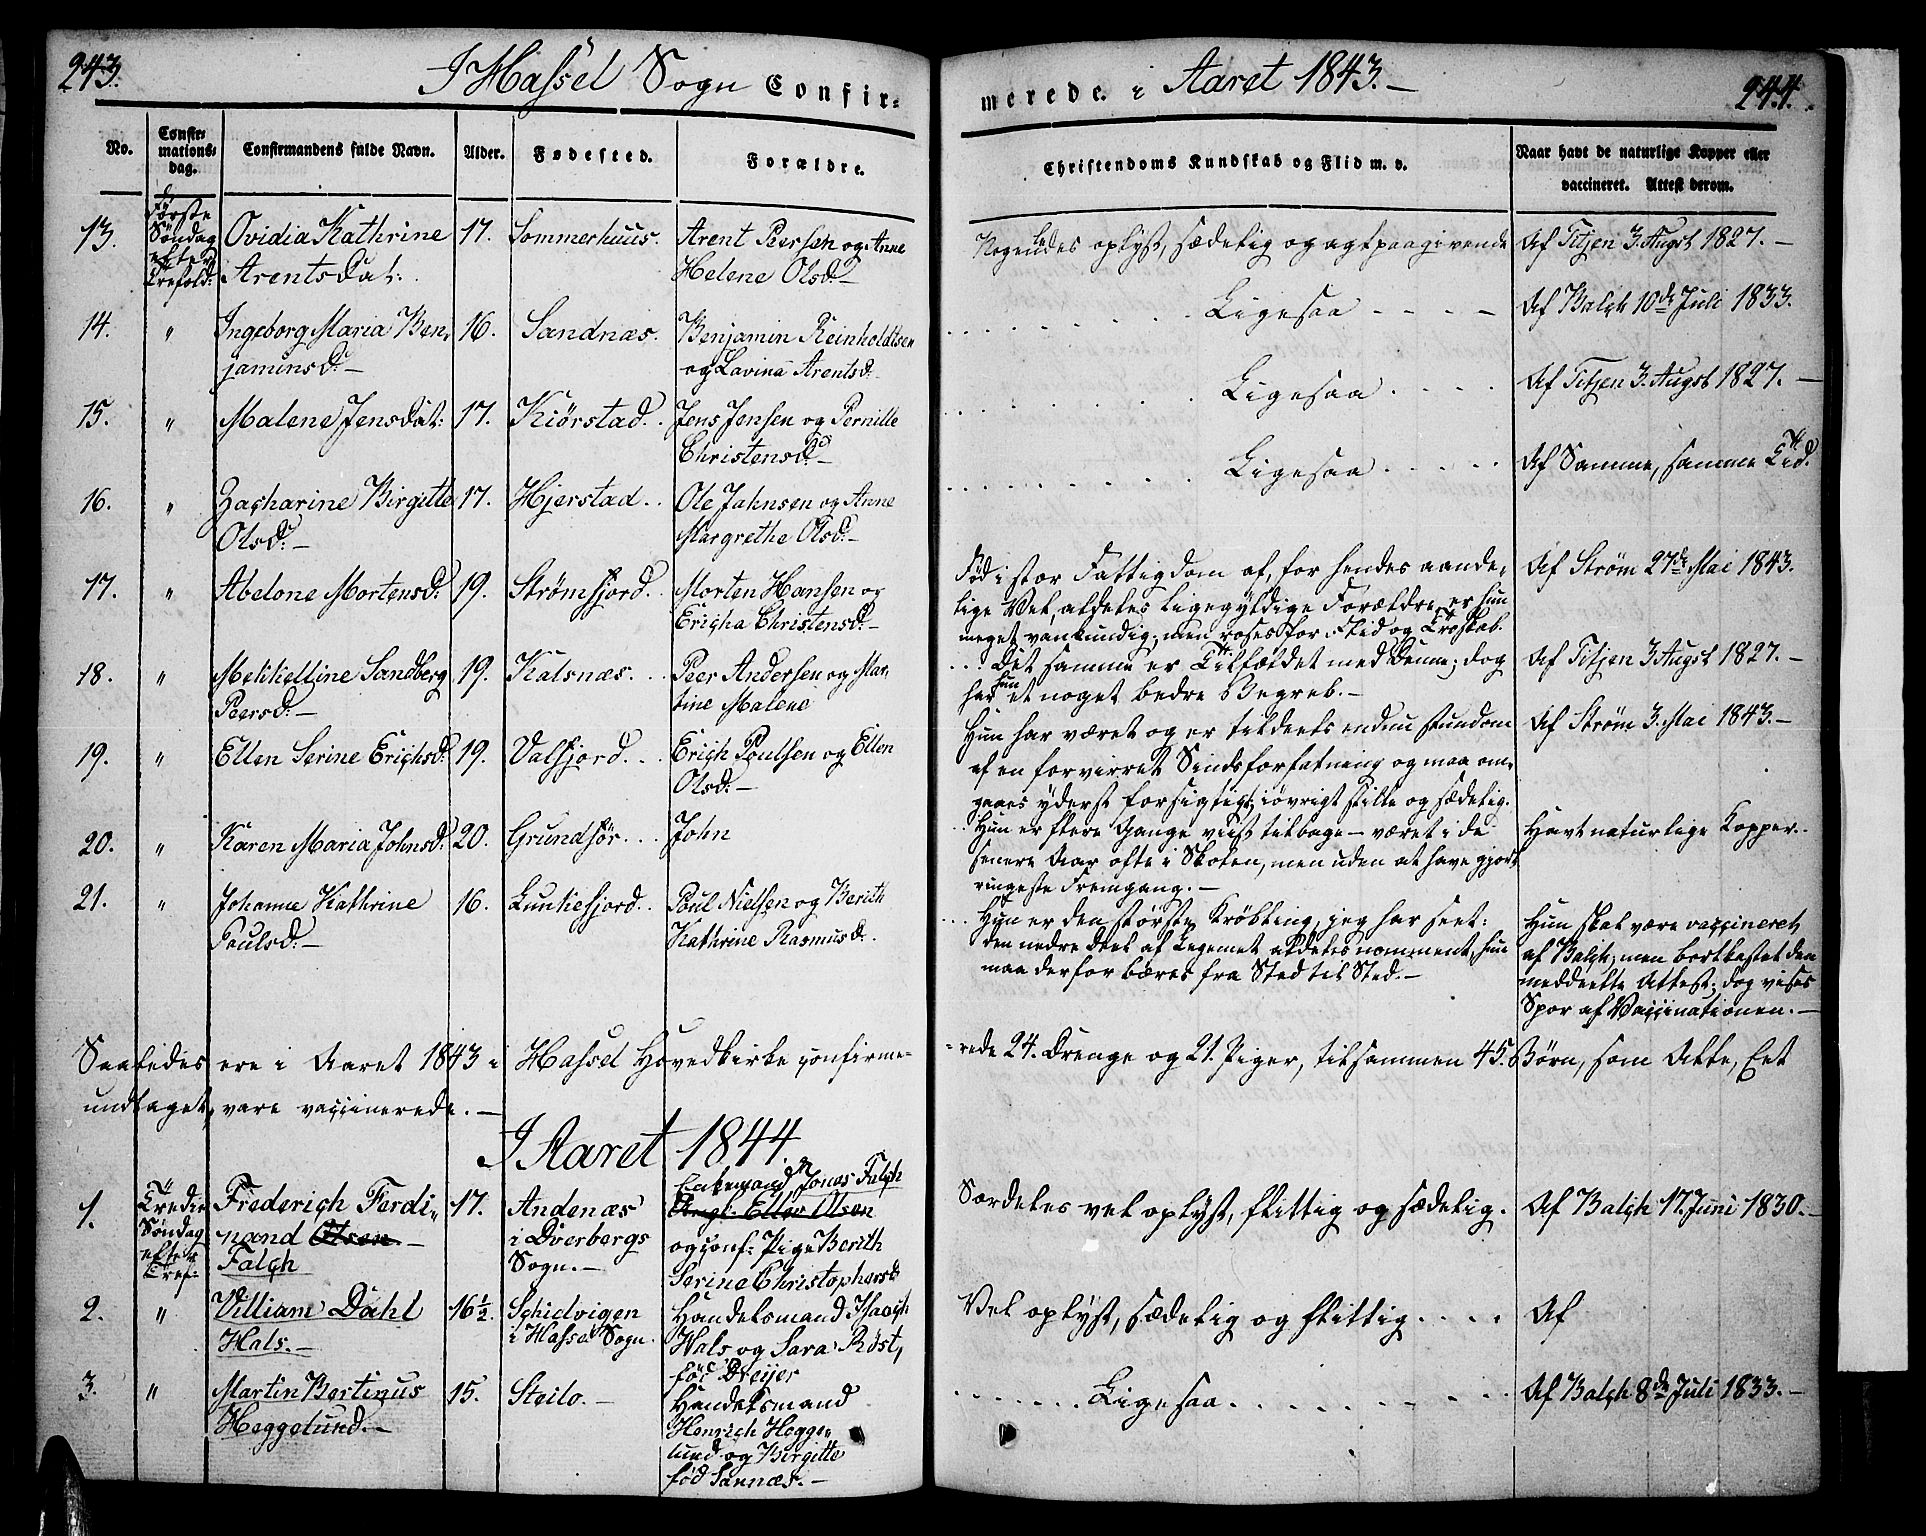 243.
I Hassel Sogn Confir-
merede i Aaret 1843.-
244.
No.
Confir-
mations-
dag.
Confirmandens fulde Navn.
Alder.
Fødested.
Forældre.
Christendoms Kundskab og Flid m. v.
Naar havt de naturlige Kopper eller
vaccineret. Attest derom.
13.
Første
Søndag
efter
Trefold:
Ovidia Kathrine
Arentsdat:
17.
Sommerhuus.
Arent Peersen og Anne
Helene Olsd:-
Nogenledes oplyst, sædelig og agtpaagivende
Af Titjen 3. Augst 1827.-
14.
"
Ingeborg Maria Ben-
jaminsd:-
16.
Sandnæs.
Benjamin Reinholdtsen
og Lavina Arentsd:
Ligesaa
Af Balch 10de Juli 1833.
15.
"
Malene Jensdat:
17.
Kiørstad..
Jens Jensen og Pernille
Christensd:-
Ligesaa
Af Titjen 3. Augst 1827.-
16.
"
Zacharine Birgitte
Olsd:-
17.
Hjerstad..
Ole Jahnsen og Anne
Margrethe Olsd:-
Ligesaa
Af Samme, samme Tid.
17.
"
Abelone Mortensd:
19.
Strømfjord..
Morten Hansen og
Ericha Christensd:-
Fød i stor Fattigdom af, for hendes aande-
lige Vel, aldeles ligegyldige Forældre, er hun
meget vankundig; men roses for Flid og Troskab.
Af Strøm 27de Mai 1843.
18.
"
Mekkelline Sandberg
Peersd:-
19.
Kalsnæs...
Peer Andersen og Mar-
tine Malene
... Det samme er Tilfældet med Denne; dog
har hun et noget bedre Begreb.-
Af Titjen 3 Augst 1827.-
19.
"
Ellen Serine Erichsd:
19.
Valfjord...
Erich Poulsen og Ellen
Olsd:-
Hun har været og er tildeels endnu stundom
af en forvirret Sindsforfatning og maa om-
gaaes yderst forsigtigt; iøvrigt stille og sædelig.
Af Strøm 3. Mai 1843.-
20.
"
Karen Maria Johnsd:
20.
Grundfør...
John
Hun er flere Gange viist tilbage - været i de
senere Aar ofte i Skolen, men uden at have gjort
ringeste Fremgang.-
Havt naturlige Kopper.
21.
"
Johanne Kathrine
Poulsd:-
16.
Lunkefjord..
Poul Nielsen og Berith
Kathrine Rasmusd:
... Hun er den største Krøbling, jeg har seet:
den nedre Deel af Legemet aldeles nomment, hun
maa derfor bæres fra Sted til Sted.-
Hun skal være vaccineret
af Balch, men bortkastet den
meddeelte Attest; dog vises
Spor af Vaccinationen.-
Saaledes ere i Aaret 1843 i Hassel Hovedkirke confirme-
-rede 24. Drenge og 21. Piger, tilsammen 45. Børn, som Alle, Eet
undtaget, vare vaccinerede.-
I Aaret 1844.
1.
Tredie
Søndag
efter
Tref:
Frederich Ferdi-
nand Olsen.-
Falch
17.
Andenæs
i Dverbergs
Sogn.-
Jonas Falch
Ellev Olsen
og conf: Pige Berith
Serine Christophersd:
Særdeles vel oplyst, flittig og sædelig.
Af Balch 17. Juni 1830.-
2.
"
Villiam Dahl
Hals.-
16½.
Schielvigen
i Hassel Sogn.
Handelsmand Isaach
Hals og Sara Røst,
fød Dreijer
Vel oplyst, sædelig og flittig....
Af
3.
"
Martin Bertinus
Heggelund.-
15.
Steilo.-
Handelsmand
Henrich Hegge-
lund og Birgitte
fød Sannæs.-
Ligesaa
Af Balch 8de Juli 1833.-